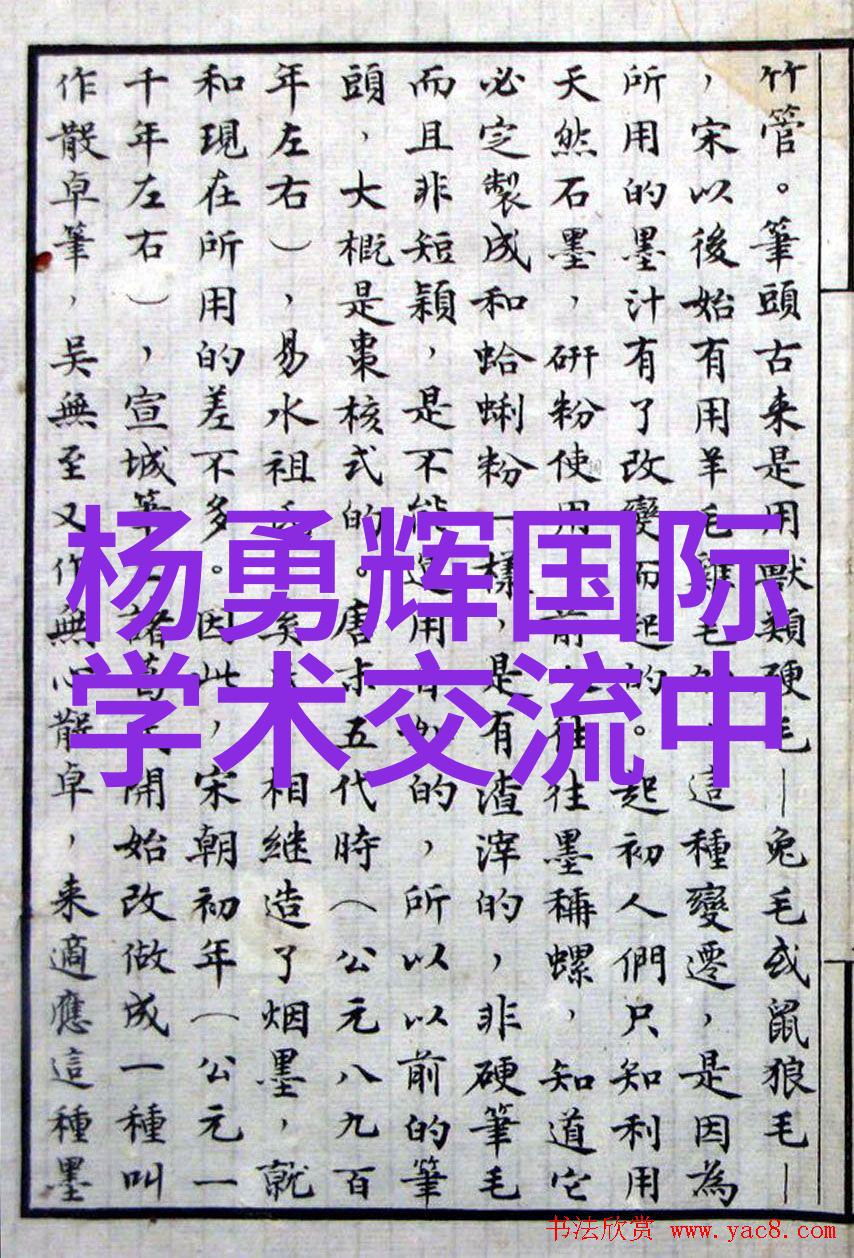 竹管。筆頭古来是用獸類硬毛—兔毛或鼠狼毛—
，宋以後始有用羊毛雞毛的，這種變遷，是因為
所用的墨汁有了改變而起的。起初人們只知利用
天然石墨，研粉使用，前往往墨稱螺，知道它
必定製成和蛤蜊粉一樣，是有渣滓的，非硬筆毛
而且非短穎，是不能適用的，所以以前的筆
頭，大概是棗核式的。唐末五代時（公元八九百
年左右），易水祖氏奚相継造了烟墨，就
和現在所用的差不多。因此，宋朝初年（公元一
千年左右），宣城筆諸葛開始改做成一種叫
作散卓筆，吳無至又作無心散卓，来適應這種墨
杨勇辉国际
学术交流中
书法欣赏 www.yac8.com